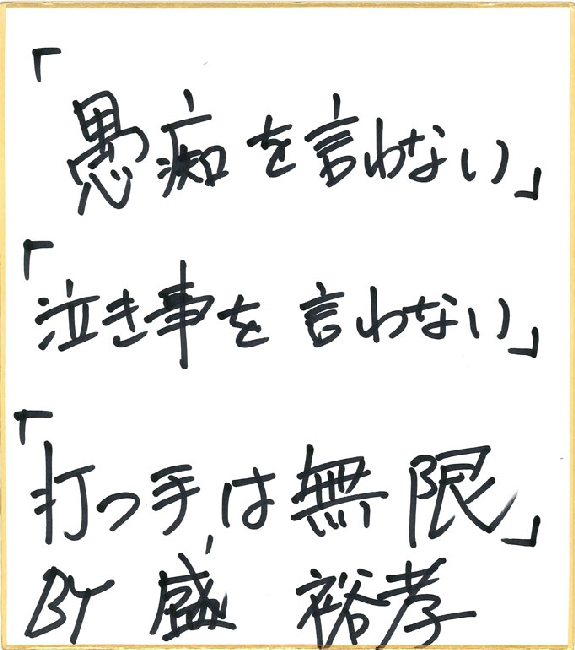 「愚痴を言わない」
「泣き事を言わない」
「打つ手は無限」
BY 盛 裕孝